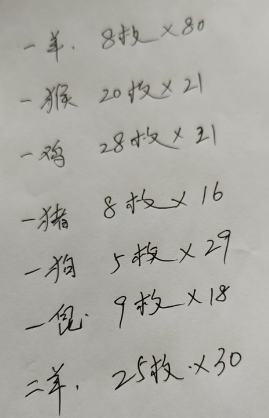 一羊. 8枚×80
一猴 20枚×21
一鸡 28枚×31
一猪 8枚×16
一狗 5枚×29
一 9枚×18
二羊. 25枚.×30